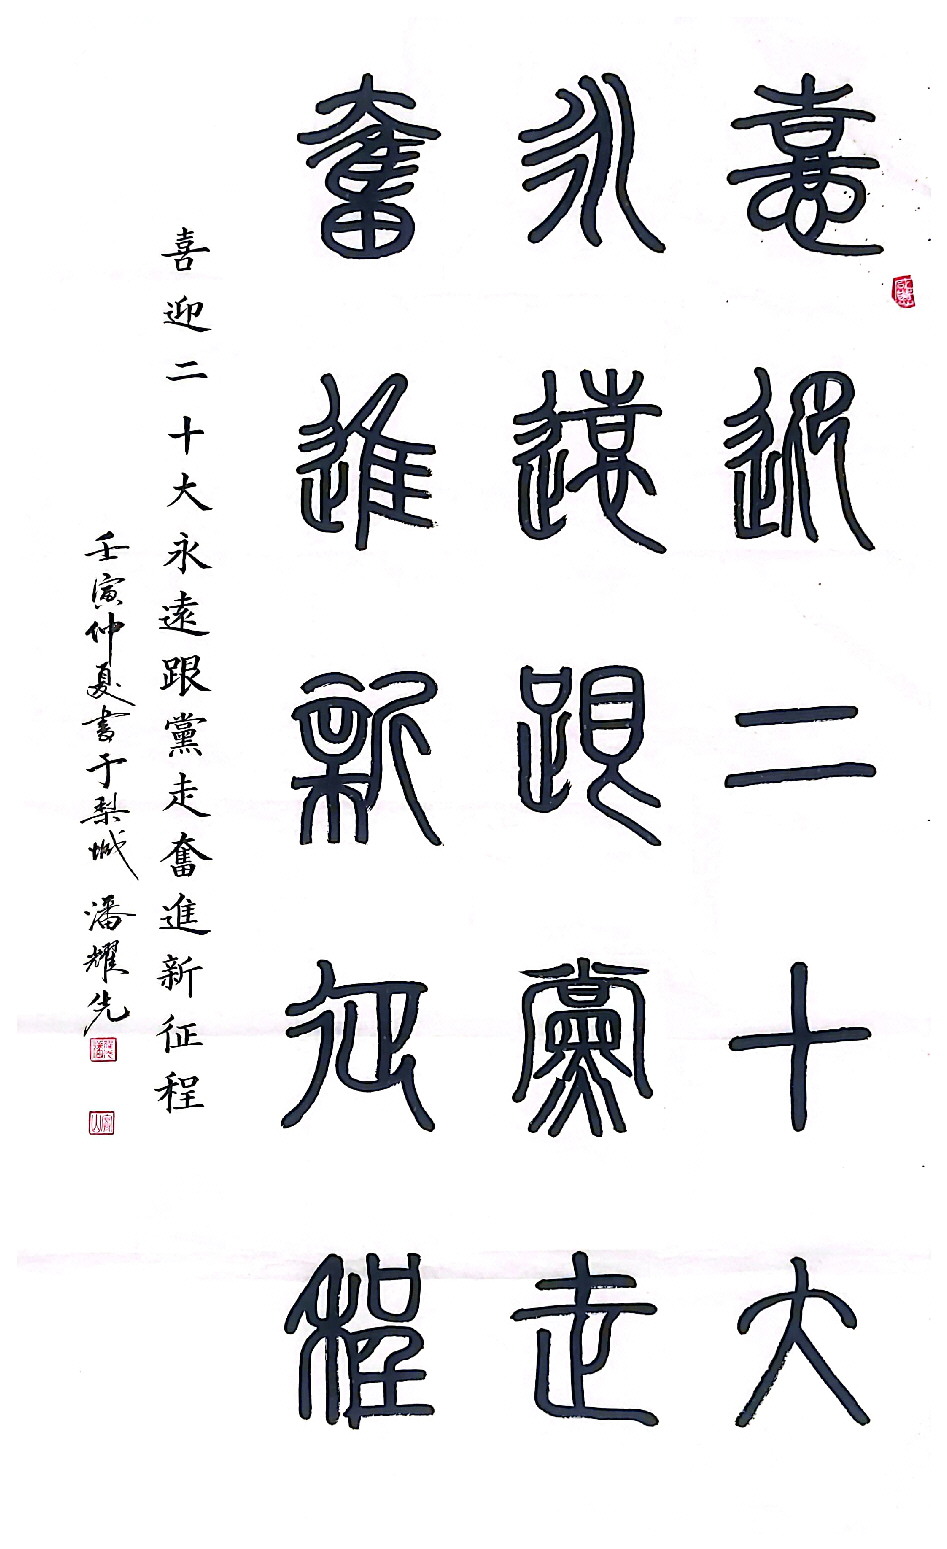 憙迎二十大
永遠跟黨走
奮進新征程
喜迎二十大永遠跟黨走奮進新征程
壬寅仲夏書于梨城潘耀先